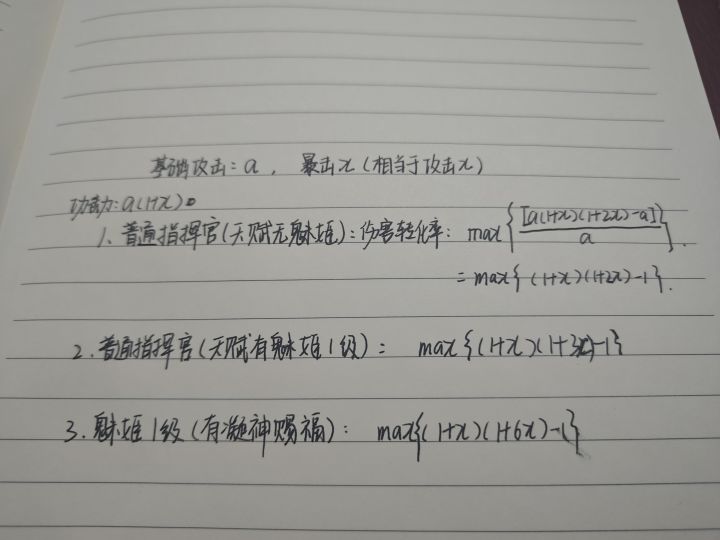 基础攻击：a，暴击x（相当于攻击x）
功击力：a(1+x)。
1、普通指挥官（天赋无魅姬）：伤害转化率：max{[a(1+x)(1+2x)-a]/a}.
=max{(1+x)(1+2x)-1}.
2.普通指挥官（天赋有魅姬1级）：max{(1+x)(1+3x)-1}
3.魅姬1级（有凝神赐福）：max{(1+x)(1+6x)-1}